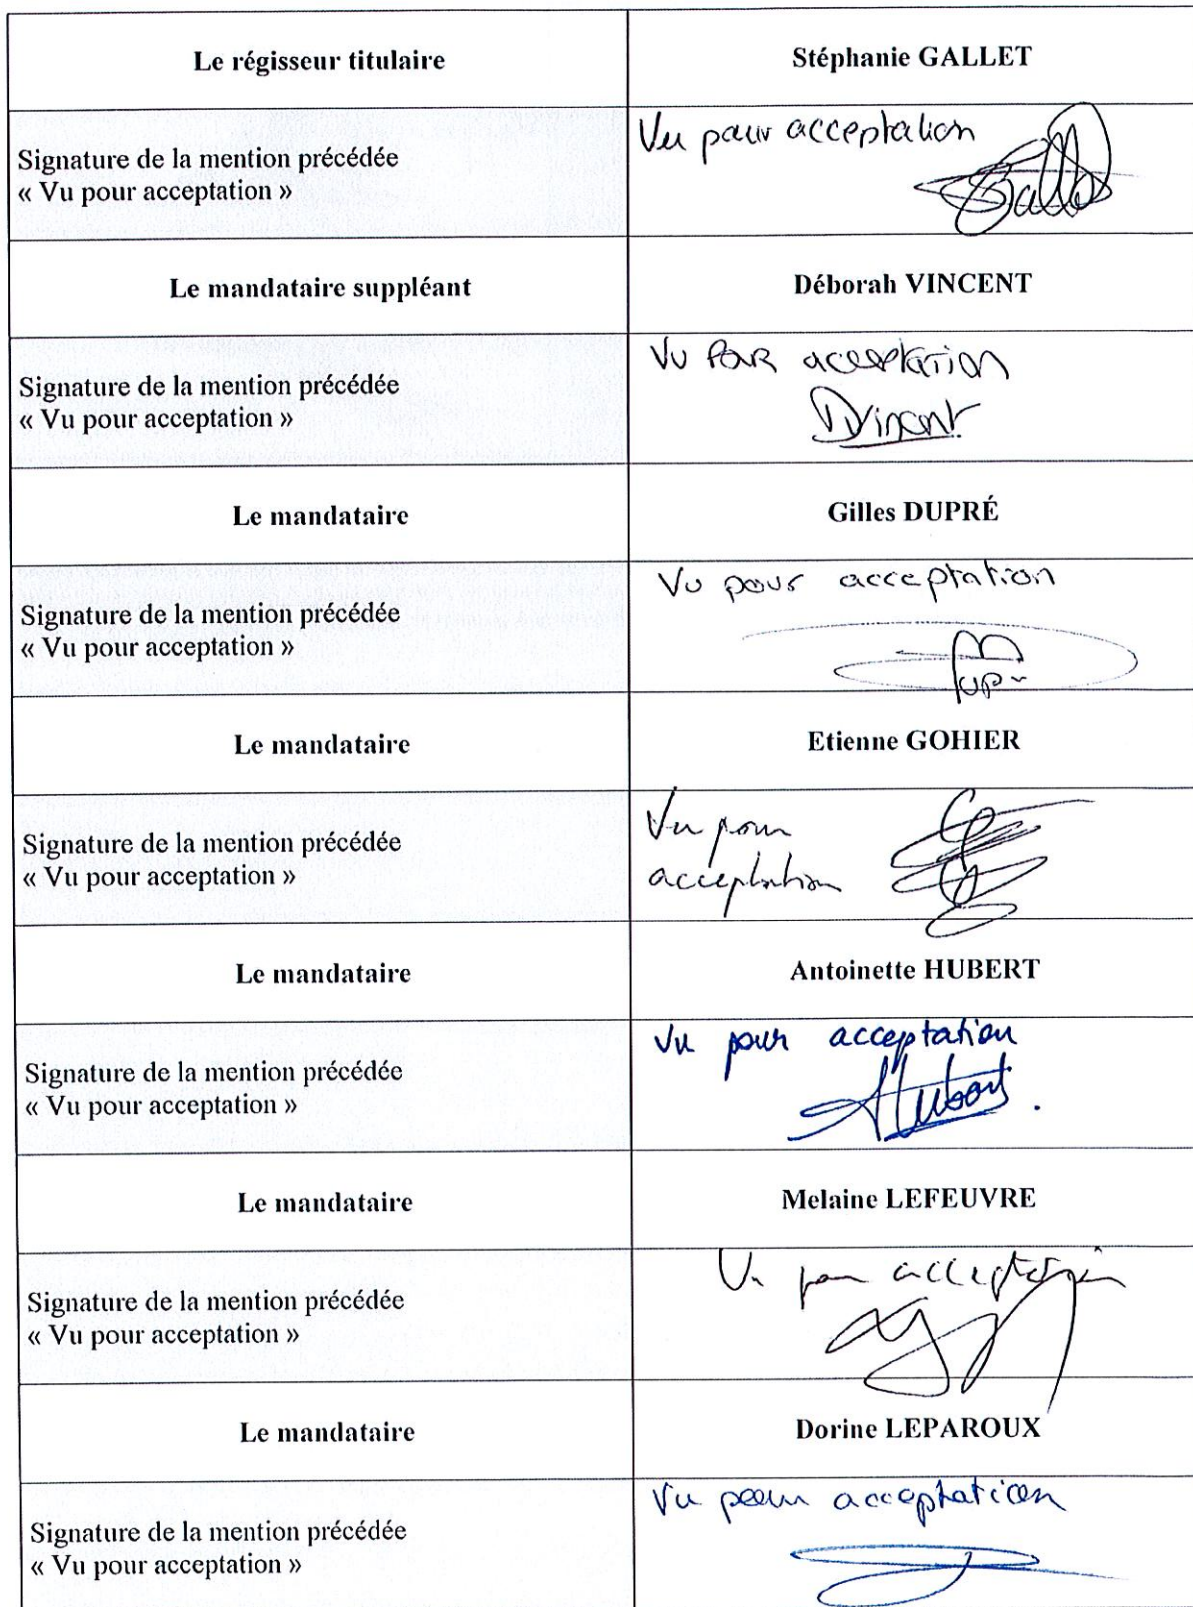 Le régisseur titulaire
Stéphanie GALLET
Signature de la mention précédée
« Vu pour acceptation »
Vu pour acceptation
Gallet
Le mandataire suppléant
Déborah VINCENT
Signature de la mention précédée
« Vu pour acceptation »
Vu POUR acceptation
DVincent
Le mandataire
Gilles DUPRÉ
Signature de la mention précédée
« Vu pour acceptation »
Vu pour acceptation
Le mandataire
Etienne GOHIER
Signature de la mention précédée
« Vu pour acceptation »
Vu pour
acceptation
Le mandataire
Antoinette HUBERT
Signature de la mention précédée
« Vu pour acceptation »
Vu pour acceptation
AHubert.
Le mandataire
Melaine LEFEUVRE
Signature de la mention précédée
« Vu pour acceptation »
Vu pour acceptation
Le mandataire
Dorine LEPAROUX
Signature de la mention précédée
« Vu pour acceptation »
Vu pour acceptation